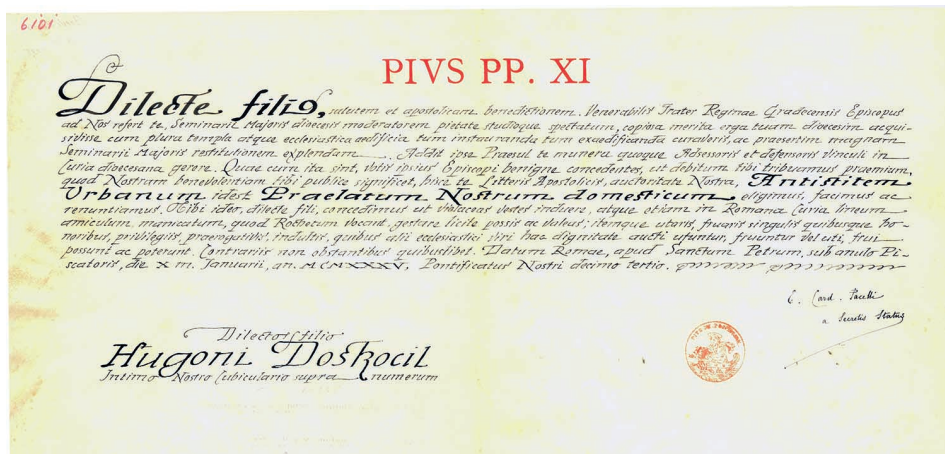 6101
PIVS PP. XI
Dilecte fili, salutem et apostolicam benedictionem. Venerabilis Frater Reginae Gradecensis Episcopus
ad Nos refert te, Seminarii Majoris dioecesis moderatorem pietate studioque spectatum, copiosa merita erga tuam dioecesim acqui-
sibisse cum plura templa atque ecclesiastica aedificia tum instauranda tum exaedificanda curaveris, ac praesertim magnam
Seminarii Majoris restitutionem explendam. Addit ipse Praesul te munera quoque Adsessoris et defensoris vinculi in
Curia dioecesana gerere. Quae cum ita sint, votis ipsius Episcopi benigne concedentes, ut debitum tibi tribuamus praemium,
quod Nostram benevolentiam tibi publice significet, hisce te Litteris Apostolicis, auctoritate Nostra, Antistitem
Urbanum idest Praelatum Nostrum domesticum eligimus, facimus ac
renuntiamus. Tibi ideo, dilecte fili, concedimus ut violaceas vestes induere, atque etiam in Romana Curia lineum
amiculum manicatum, quod Rochetum vocant, gestare licite possis ac valeas; itemque utaris, fruaris singulis quibusque ho-
noribus, privilegiis, praerogativis, indultis, quibus alii ecclesiastici viri hac dignitate aucti utuntur, fruuntur vel uti, frui
possunt ac poterunt. Contrariis non obstantibus quibuslibet. Datum Romae, apud Sanctum Petrum, sub anulo Pi-
scatoris, die X m. Januarii, an. MCMXXXV, Pontificatus Nostri decimo tertio.
E. Card. Pacelli
a Secretis Status
Dilecto filio
Hugoni Doskocil
Intimo Nostro Cubiculario supra numerum